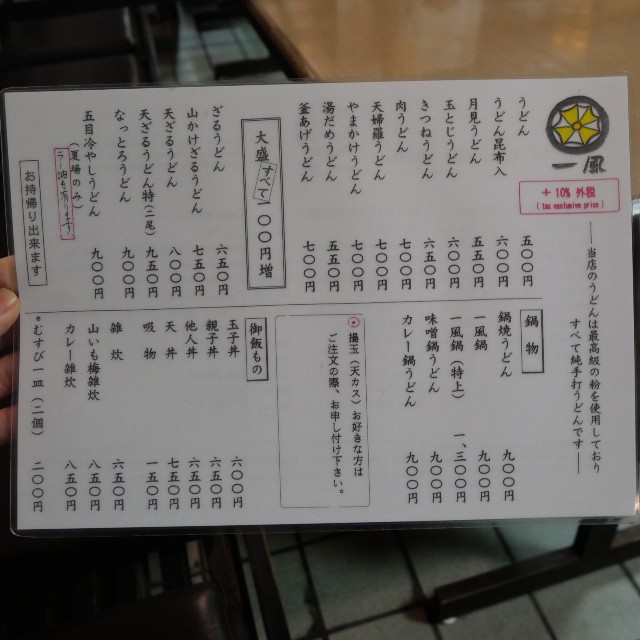 一風
+ 10% 外税
( tax exclusive price )
――当店のうどんは最高級の粉を使用しており
すべて純手打うどんです――
うどん 五〇〇円
うどん昆布入 六〇〇円
月見うどん 五五〇円
玉とじうどん 六〇〇円
きつねうどん 六五〇円
肉うどん 七〇〇円
天婦羅うどん 七〇〇円
やまかけうどん 七〇〇円
湯だめうどん 五五〇円
釜あげうどん 七〇〇円
大盛すべて一〇〇円増
ざるうどん 六五〇円
山かけざるうどん 七五〇円
天ざるうどん 八〇〇円
天ざるうどん特(二尾) 九五〇円
なっとろうどん 九〇〇円
五目冷やしうどん 九〇〇円
(夏場のみ)
お持帰り出来ます
鍋物
鍋焼うどん 九〇〇円
一風鍋 九〇〇円
一風鍋(特上) 一、三〇〇円
味噌鍋うどん 九〇〇円
カレー鍋うどん 九〇〇円
揚玉(天カス)お好きな方は
ご注文の際、お申し付け下さい。
御飯もの
玉子丼 六〇〇円
親子丼 六五〇円
他人丼 六五〇円
天丼 七五〇円
吸物 一五〇円
雑炊 六五〇円
山いも梅雑炊 八五〇円
カレー雑炊 八五〇円
*むすび一皿(二個) 二〇〇円